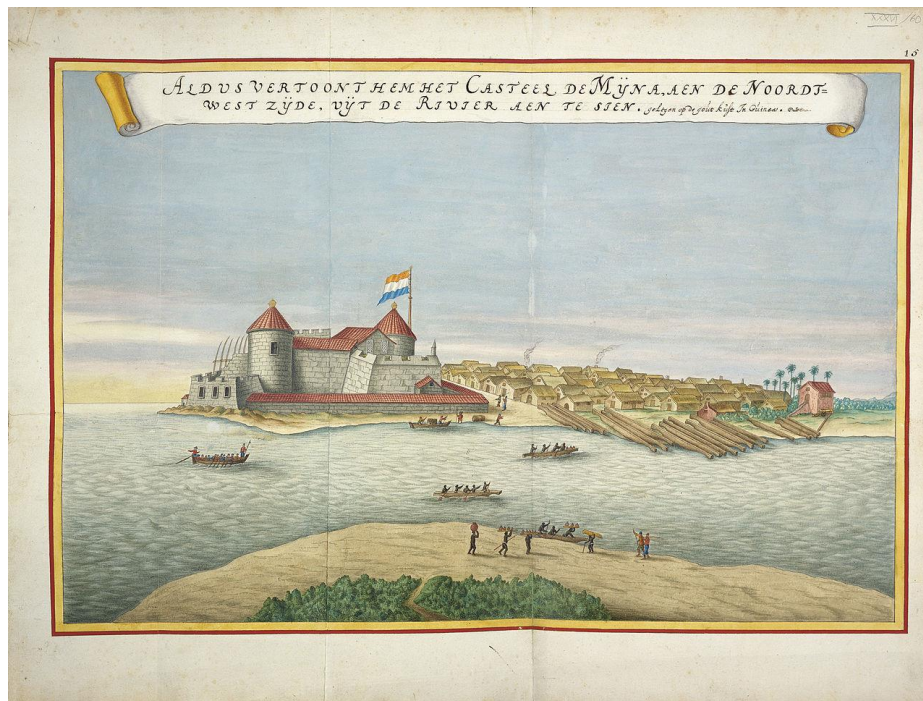 15
ALDVS VERTOONT HEM HET CASTEEL DE MŸNA, AEN DE NOORDT=
WEST ZŸDE, VŸT DE RIVIER AEN TE SIEN. gelegen op de gout kust In Guinea.